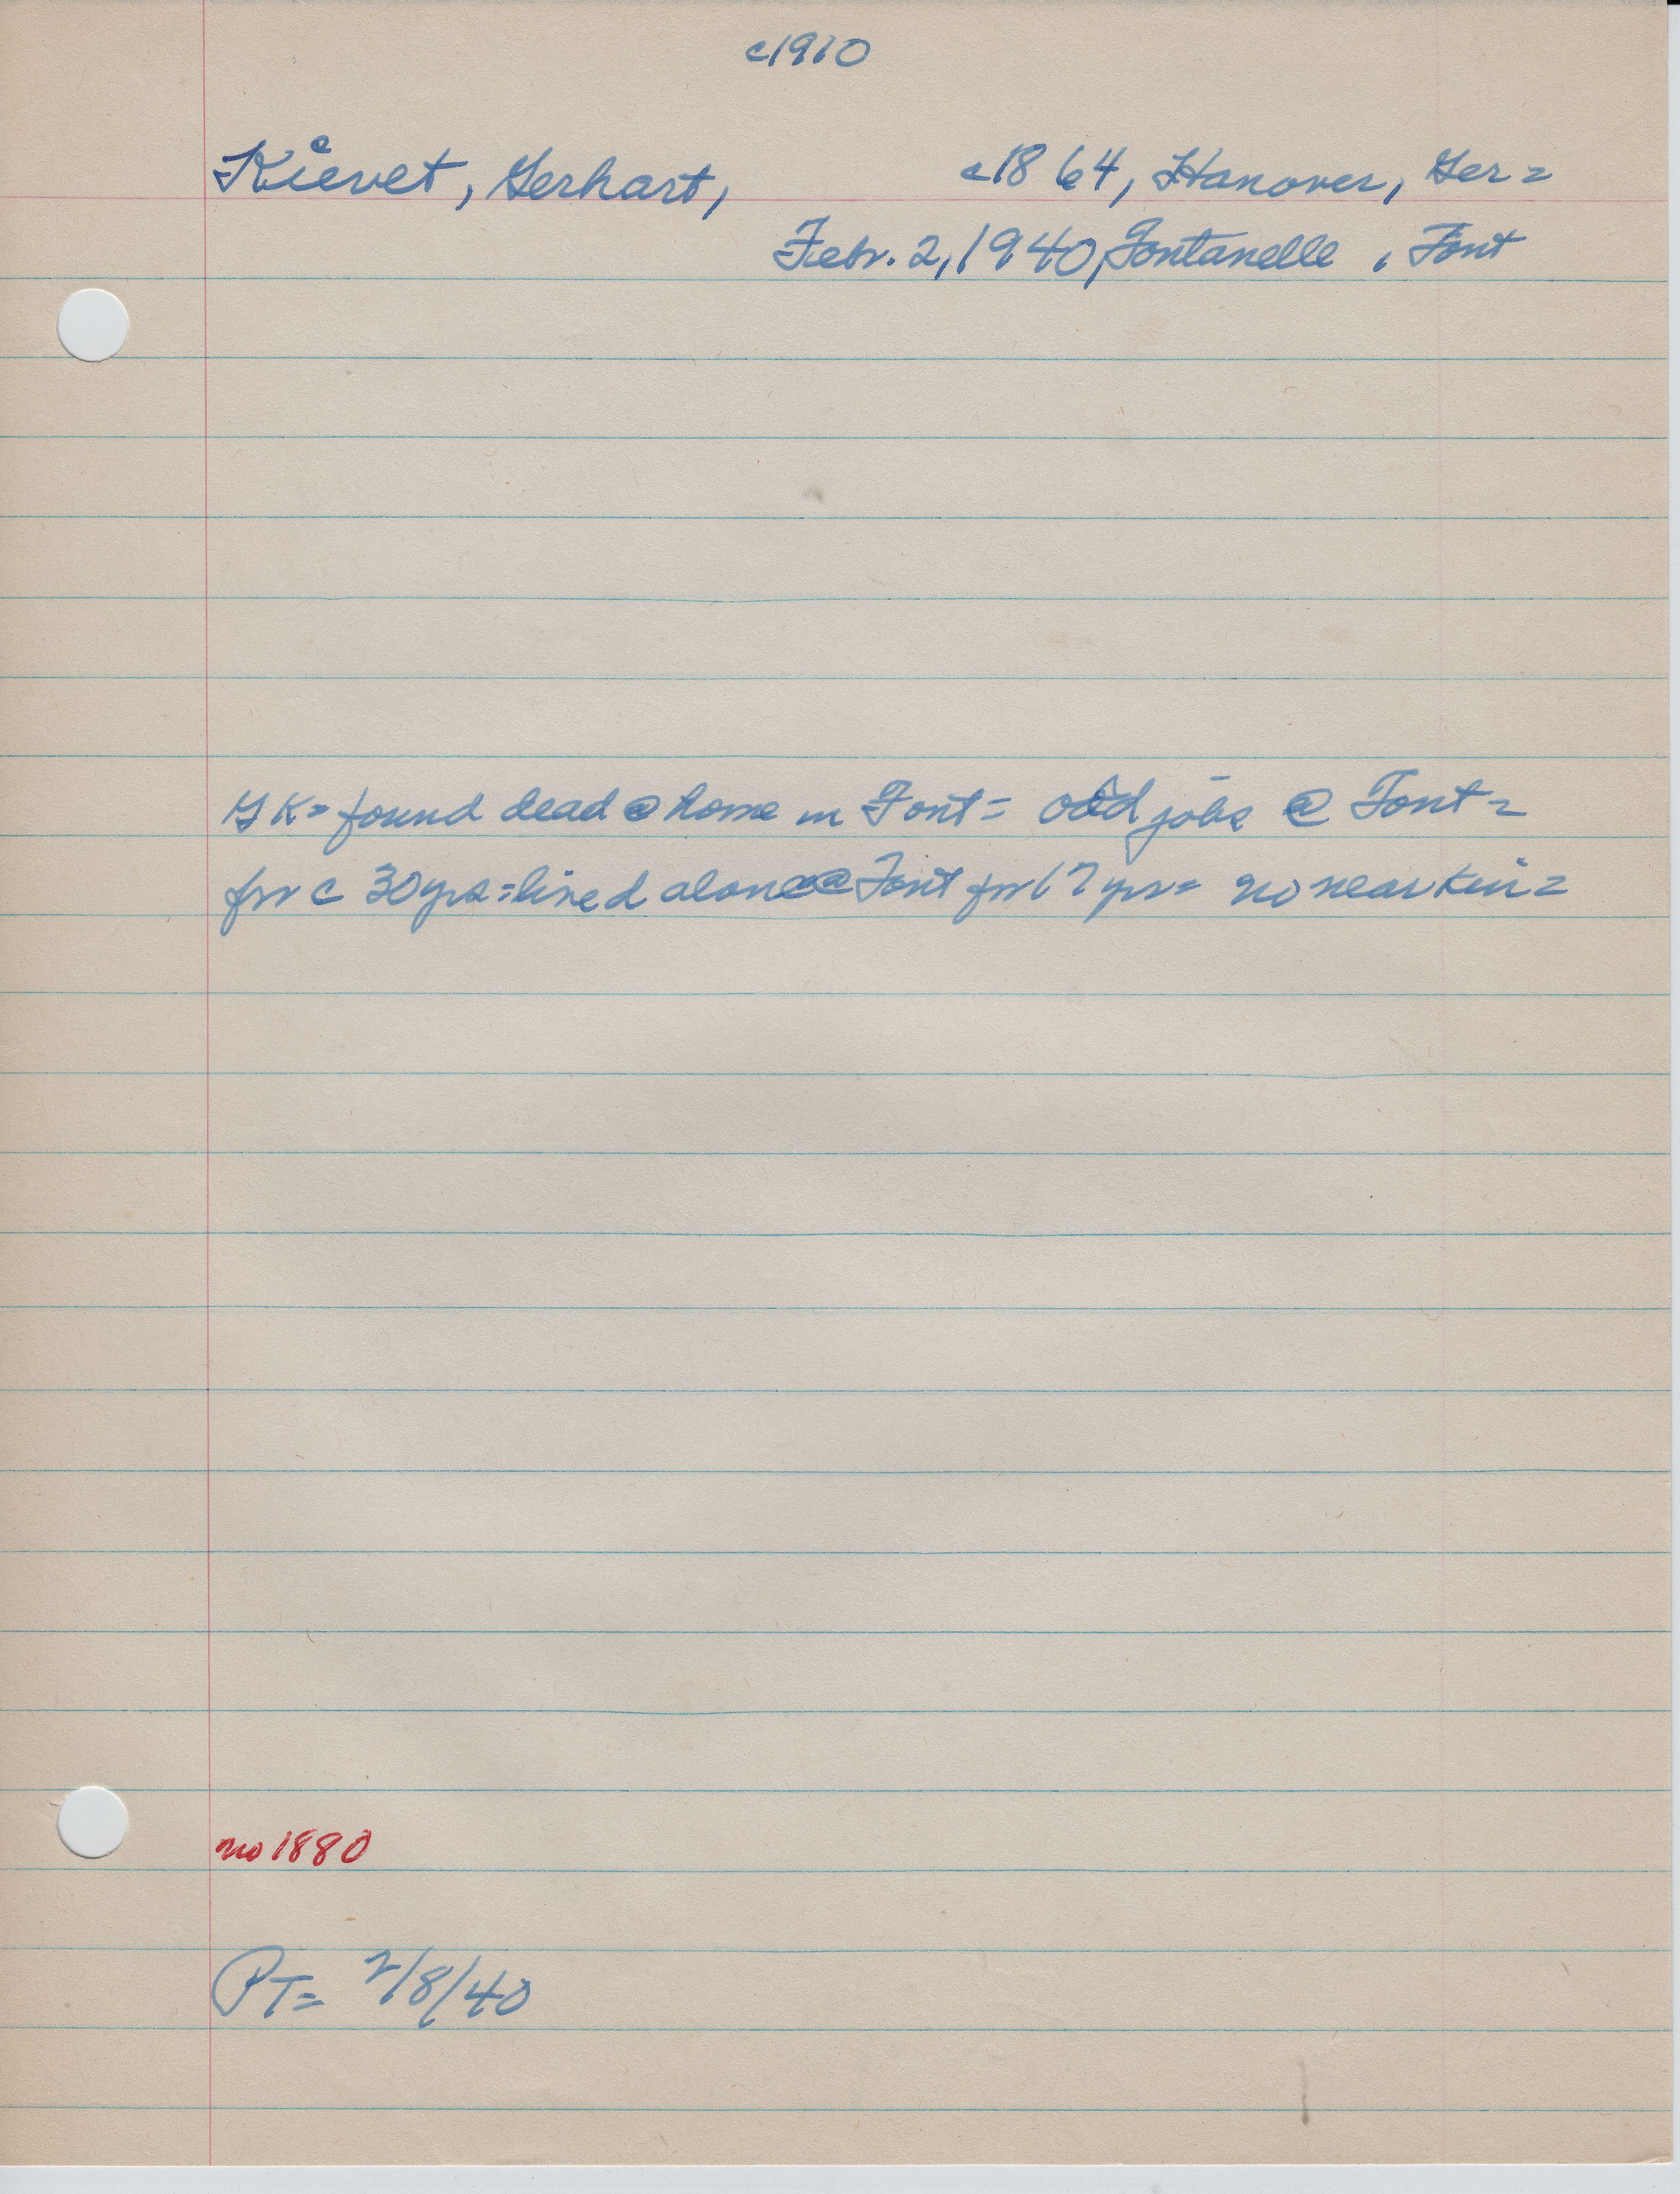 c1910
Kievet, Gerhart, c1864, Hanover, Ger=
Febr. 2, 1940, Fontanelle, Font
GK= found dead @ home in Font= odd jobs @ Font=
for c 30 yrs= lived alone @ Font for 17 yrs= no near kin=
no 1880
PT= 2/8/40